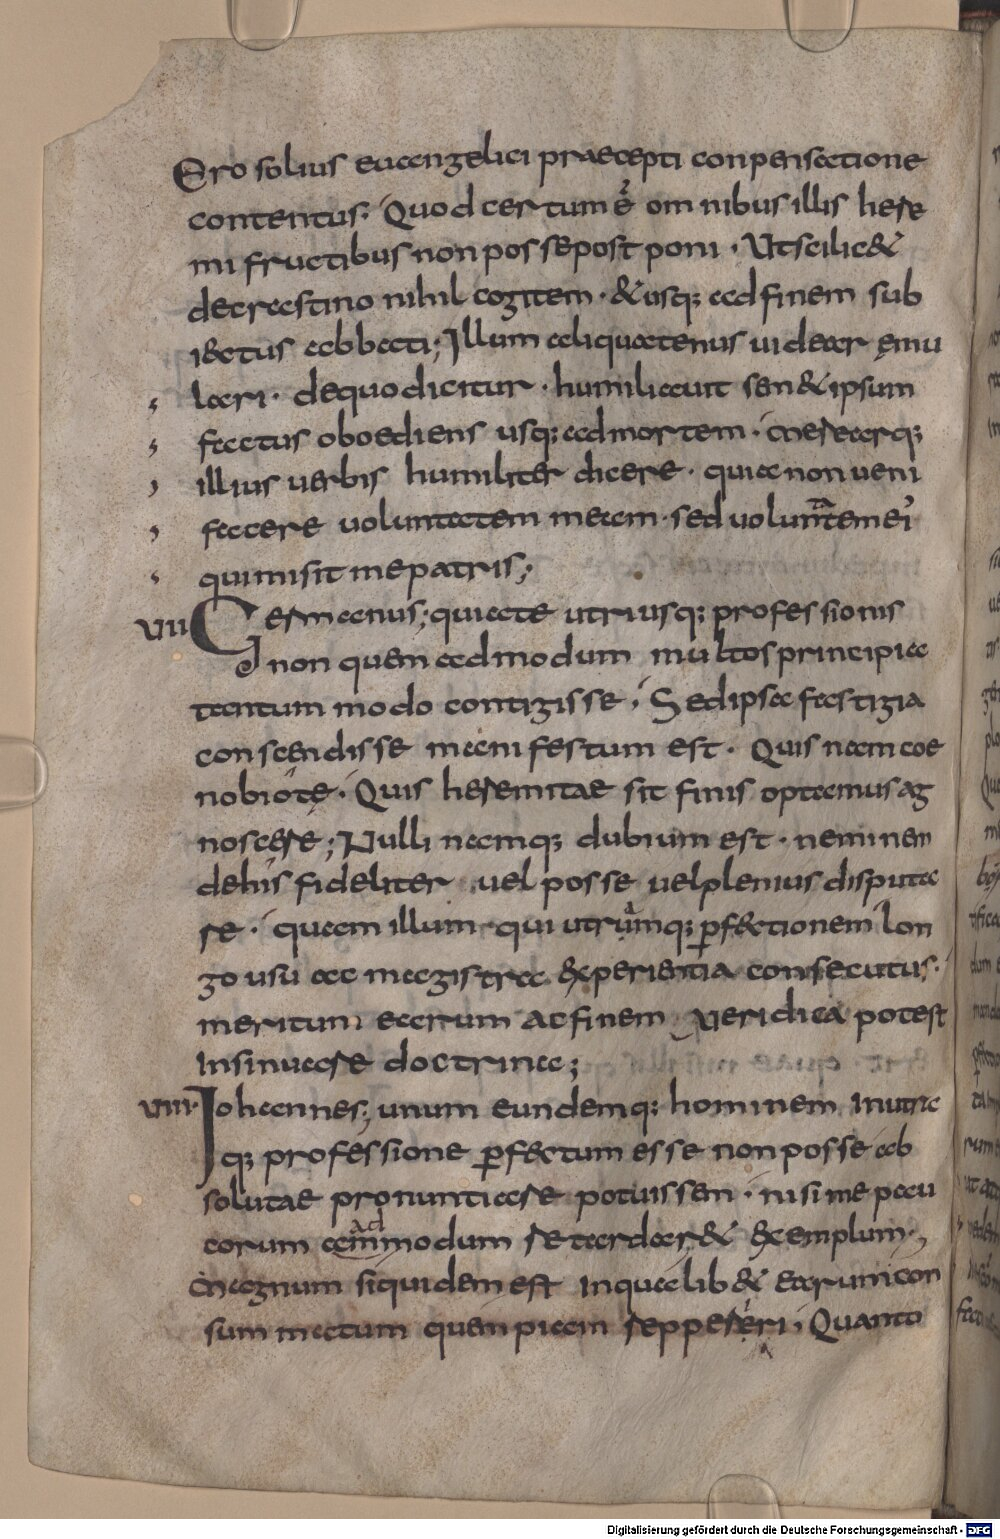 Ero solius euangelici praecepti conpensatione
contentus; Quod certum ē omnibus illis here
mi fructibus non posse post poni · Ut scilic&
de crastino nihil cogitem · & usq; ad finem sub
iectus abbati; Illum aliquatenus uidear ęmu
lari · de quo dicitur · humiliauit sem& ipsum
factus oboediens usq; ad mortem · merearq;
illius uerbis humiliter dicere · quia non ueni
facere uoluntatem meam · sed uoluntatem ei'
qui misit me patris;
VII Germanus; quia te utriusq; professionis
non quem admodum multos principia
tantum modo contigisse · Sed ipsa fastigia
conscendisse manifestum est · Quis nam coe
nobiotę · Quis heremitae sit finis optamus ag
noscere; Nulli namq; dubium est · neminem
de his fideliter uel posse uel plenius disputa
re · quam illum qui utramq; ꝑfectionem lon
go usu ac magistra experientia consecutus ·
meritum earum ac finem ueridica potest
insinuare doctrina;
VIII Iohannes; unum eundemq; hominem in utra
q; professione ꝑfectum esse non posse ab
solutae pronuntiare potuissem · nisi me pau
corum admodum retardar& exemplum ·
Magnum siquidem est in qualib& earum con
summatum quempiam repperiri · Quanto
Digitalisierung gefördert durch die Deutsche Forschungsgemeinschaft - DFG